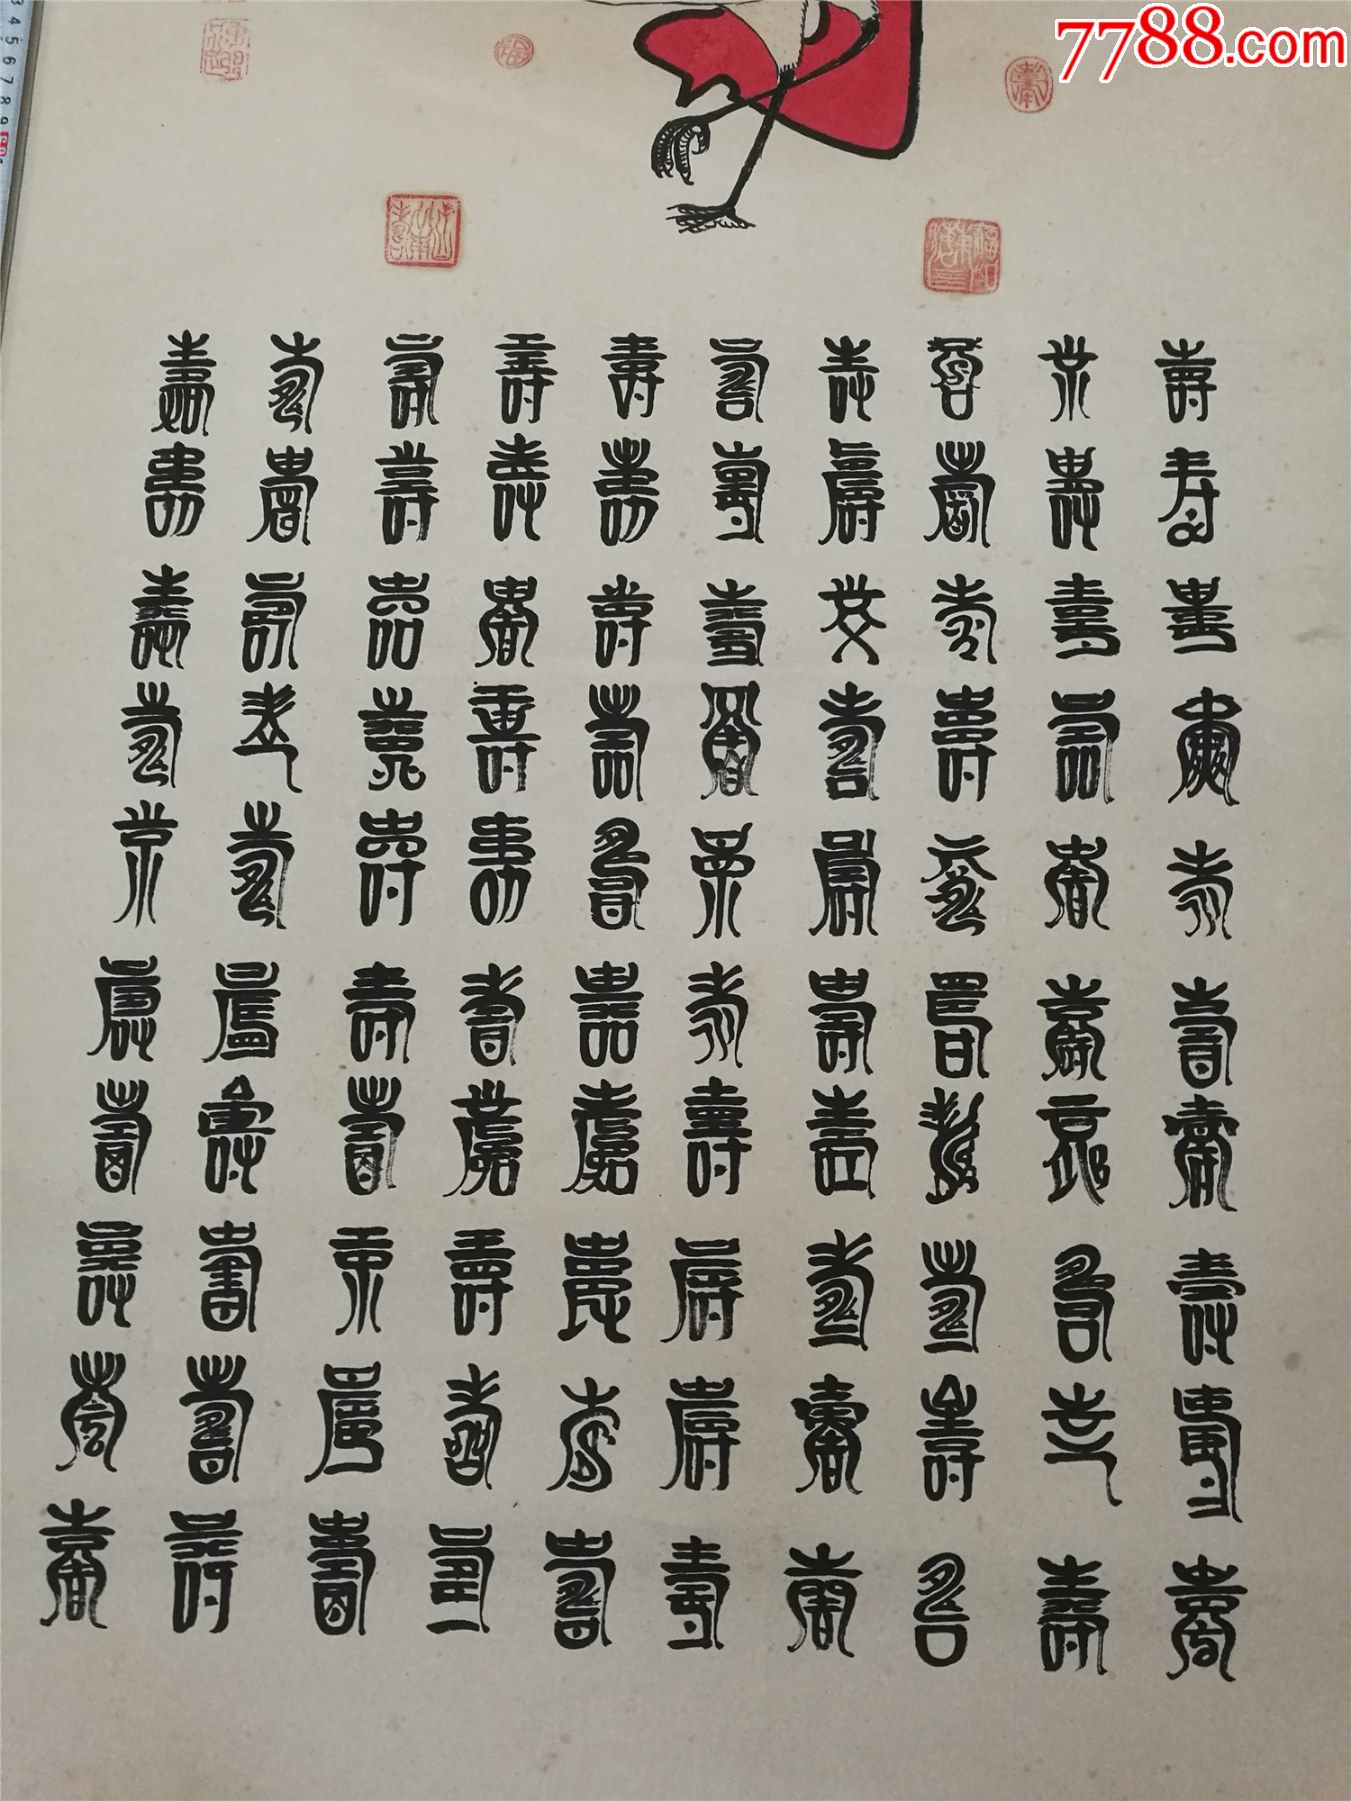 7788.com
3 4 5 6 7 8 9
壽壽壽壽壽壽壽壽壽壽
壽壽壽壽壽壽壽壽壽壽
壽壽壽壽壽壽壽壽壽壽
壽壽壽壽壽壽壽壽壽壽
壽壽壽壽壽壽壽壽壽壽
壽壽壽壽壽壽壽壽壽壽
壽壽壽壽壽壽壽壽壽壽
壽壽壽壽壽壽壽壽壽壽
壽壽壽壽壽壽壽壽壽壽
壽壽壽壽壽壽壽壽壽壽